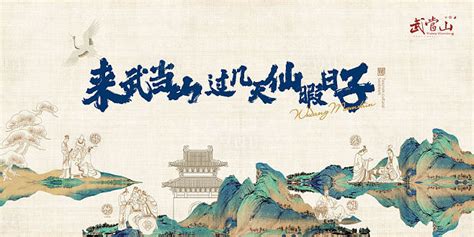 武当山
来武当山 过几天仙暇日子
Wudang Mountain